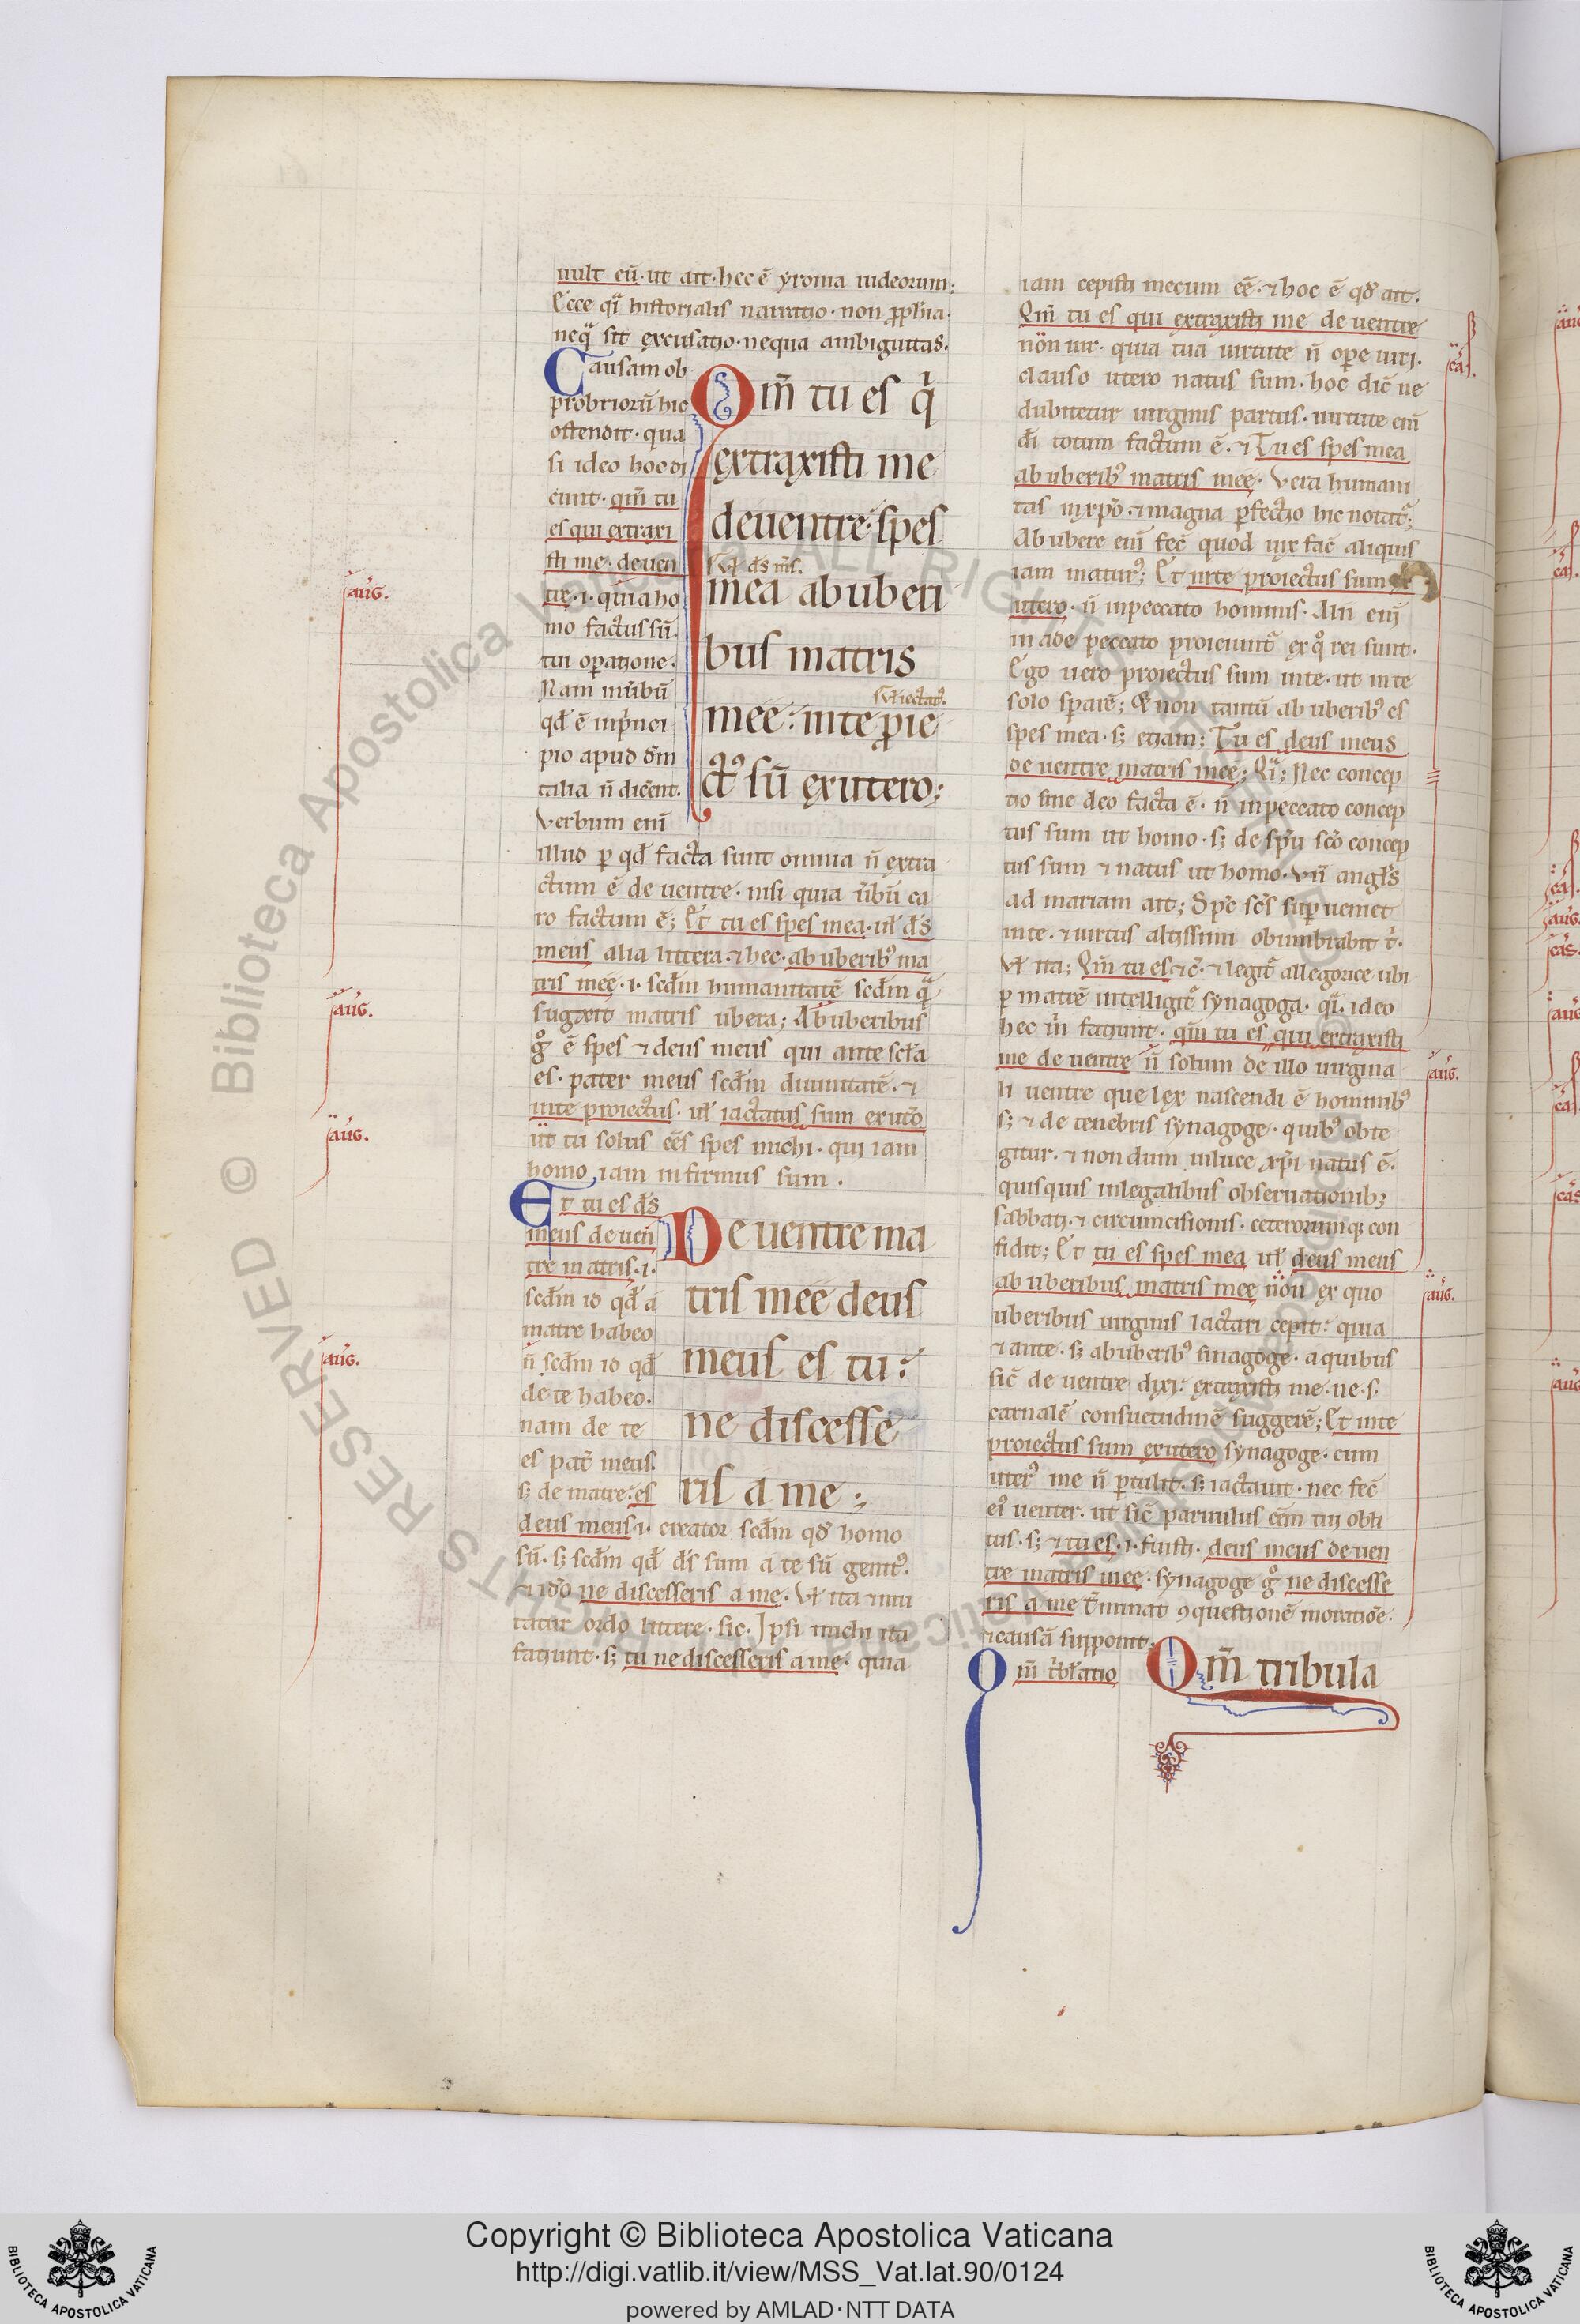 uult eū·ut ait·hec ē yronia iudeorum:
Ecce qͥ historialis narratio·non ꝓph̄ia·
neqͣ sit excusatio·nequa ambiguitas.
Causam ob
probrioꝛū hic
ostendit·qua
si ideo hoc di
cunt·qm̄ tu
es qui extraxi
sti me·de uen
tre·i·quia ho
mo factus sū.
tui oꝑatione.
Nam uerbū
qd̄ ē in pͥnci
pio apud dm̄
talia n̄ dicēnt.
Verbum eni̅
Qm̄ tu es qͥ
extraxisti me
deuentre: spes
ſ. vl̓ ds̄ ms̄.
mea ab uberi
bus matris
ſ. vl̓ iactatꝰ.
mee: inte ꝓie
ctꝰ sū ex utero:
illud ꝑ qd̄ facta sunt omnia n̄ extra
ctum ē de uentre·nisi quia ūbū ca
ro factum ē; Et tu es spes mea·ul̓ ds̄
meus alia littera·⁊ hec·ab uberibꝰ ma
tris mee·i·scd̄m humanitatē scd̄m qͣ
sugxit matris ubera; Ab uberibus
gͦ ē spes ⁊ deus meus qui ante scl̄a
es·pater meus scd̄m diuinitatē·⁊
inte proiectus·ul̓ iactatus sum ex utō
ut tu solus ēēs spes michi·qui iam
homo, iam infirmus sum.
Et tu es ds̄
meus de uen
tre matris·i·
scd̄m id qd̄ a
matre habeo
n̄ scd̄m id qd̄
de te habeo.
nam de te
es pat̄ meus.
ſꝫ de matre: es
De uentre ma
tris mee deus
meus es tu:
ne discesse
ris a me:
deus meus·i·creator scd̄m qd̄ homo
sū·ſꝫ scd̄m qd̄ ds̄ sum a te sū genitꝰ.
⁊ iđo ne discesseris a me·Vl̓ ita ⁊ mu
tatur ordo littere·sic·Ipsi michi ita
faciunt·ſꝫ tu ne discesseris a me·quia
iam cepisti mecum ēē·⁊ hoc ē qd̄ ait.
Qm̄ tu es qui extraxisti me de uentre
non uir·quia tua uirtute n̄ oꝑe uiri.
clauso utero natus sum·hoc dic̄ ne
dubitetur uirginis partus·uirtute eni̅
di̅ totum factum ē·⁊ Tu es spes mea
ab uberibꝰ matris mee·Vera humani
tas in xpō·⁊ magna ꝑfectio hic notat᷑;
Ab ubere eni̅ fec̄ quod uix fac̄ aliquis
iam maturꝰ; Et inte proiectus sum ex
utero·n̄ inpeccato hominis·Alii eni̅
in ade peccato proiciunt᷑ ex qͦ rei sunt.
Ego uero proiectus sum inte·ut in te
solo sꝑarē; Et non tantū ab uberibꝰ es
spes mea·ſꝫ etiam; Tu es deus meus
de uentre matris mee; Qͥ; Nec concep
tio sine deo facta ē·n̄ inpeccato concep
tus sum ut homo·ſꝫ de spū scō concep
tus sum ⁊ natus ut homo·Vn̄ angl̓s
ad mariam ait; Spc̄ sc̄s suꝑueniet
inte·⁊ uirtus altissimi obumbrabit t̓.
Vl̓ ita; Qm̄ tu es ⁊c̄·⁊ legit᷑ allegorice ubi
ꝑ matrē intelligit᷑ synagoga·qͥ·ideo
hec in̄ faciunt·qm̄ tu es qui extraxisti
me de uentre n̄ solum de illo uirgina
li uentre que lex nascendi ē hominibꝰ
ſꝫ ⁊ de tenebris synagoge·quibꝰ obte
gitur·⁊ non dum inluce xp̄i natus ē.
quisquis inlegalibus obseruationibꝫ
sabbati·⁊ circumcisionis·ceterorumqꝫ con
fidit; Et tu es spes mea ul̓ deus meus
ab uberibus matris mee non ex quo
uberibus uirginis lactari cepit: quia
⁊ ante·ſꝫ ab uberibꝰ sinagoge·a quibus
sic̄ de uentre dixi: extraxisti me·ne·ſ.
carnalē consuetudinē suggerē; Et inte
proiectus sum ex utero synagoge·cum
uterꝰ me n̄ ꝑtulit·ſꝫ iactauit·nec fec̄
eiꝰ uenter·ut sic̄ paruulus cēm tui obli
tus·ſꝫ ⁊ tu es·i·fuisti·deus meus de uen
tre matris mee·synagoge gͦ ne discesse
ris a me t̄minat ꝯquestionē moratiōe.
⁊ causā suppoint.
Qm̄ t̓bl̓atio
Qm̄ tribula
auḡ.
auḡ.
auḡ.
auḡ.
ca.
auḡ.
auḡ.
© Biblioteca Apostolica Vaticana ALL RIGHTS RESERVED
Copyright © Biblioteca Apostolica Vaticana
http://digi.vatlib.it/view/MSS_Vat.lat.90/0124
powered by AMLAD·NTT DATA
BIBLIOTECA APOSTOLICA VATICANA
BIBLIOTECA APOSTOLICA VATICANA